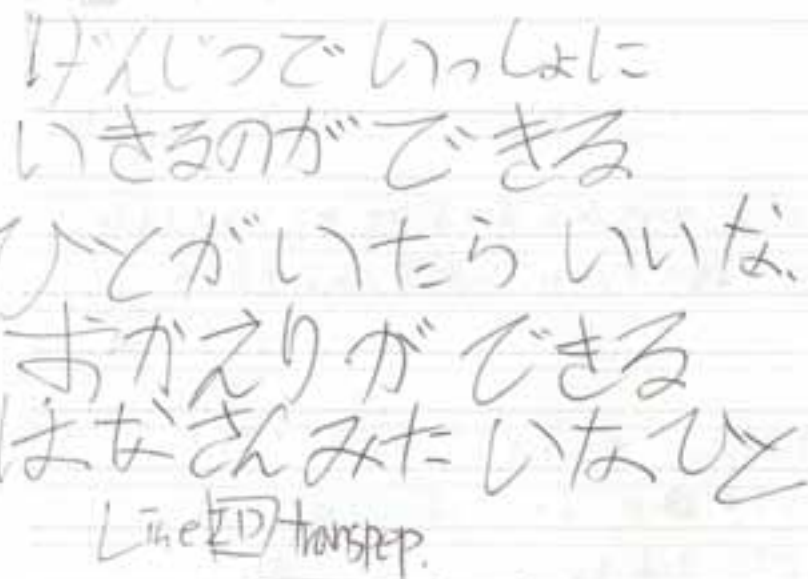 げんじつで いっしょに
いきるのが できる
ひとがいたら いいな、
おかえりが できる
はなさんみたいなひと
Line ID transpep.